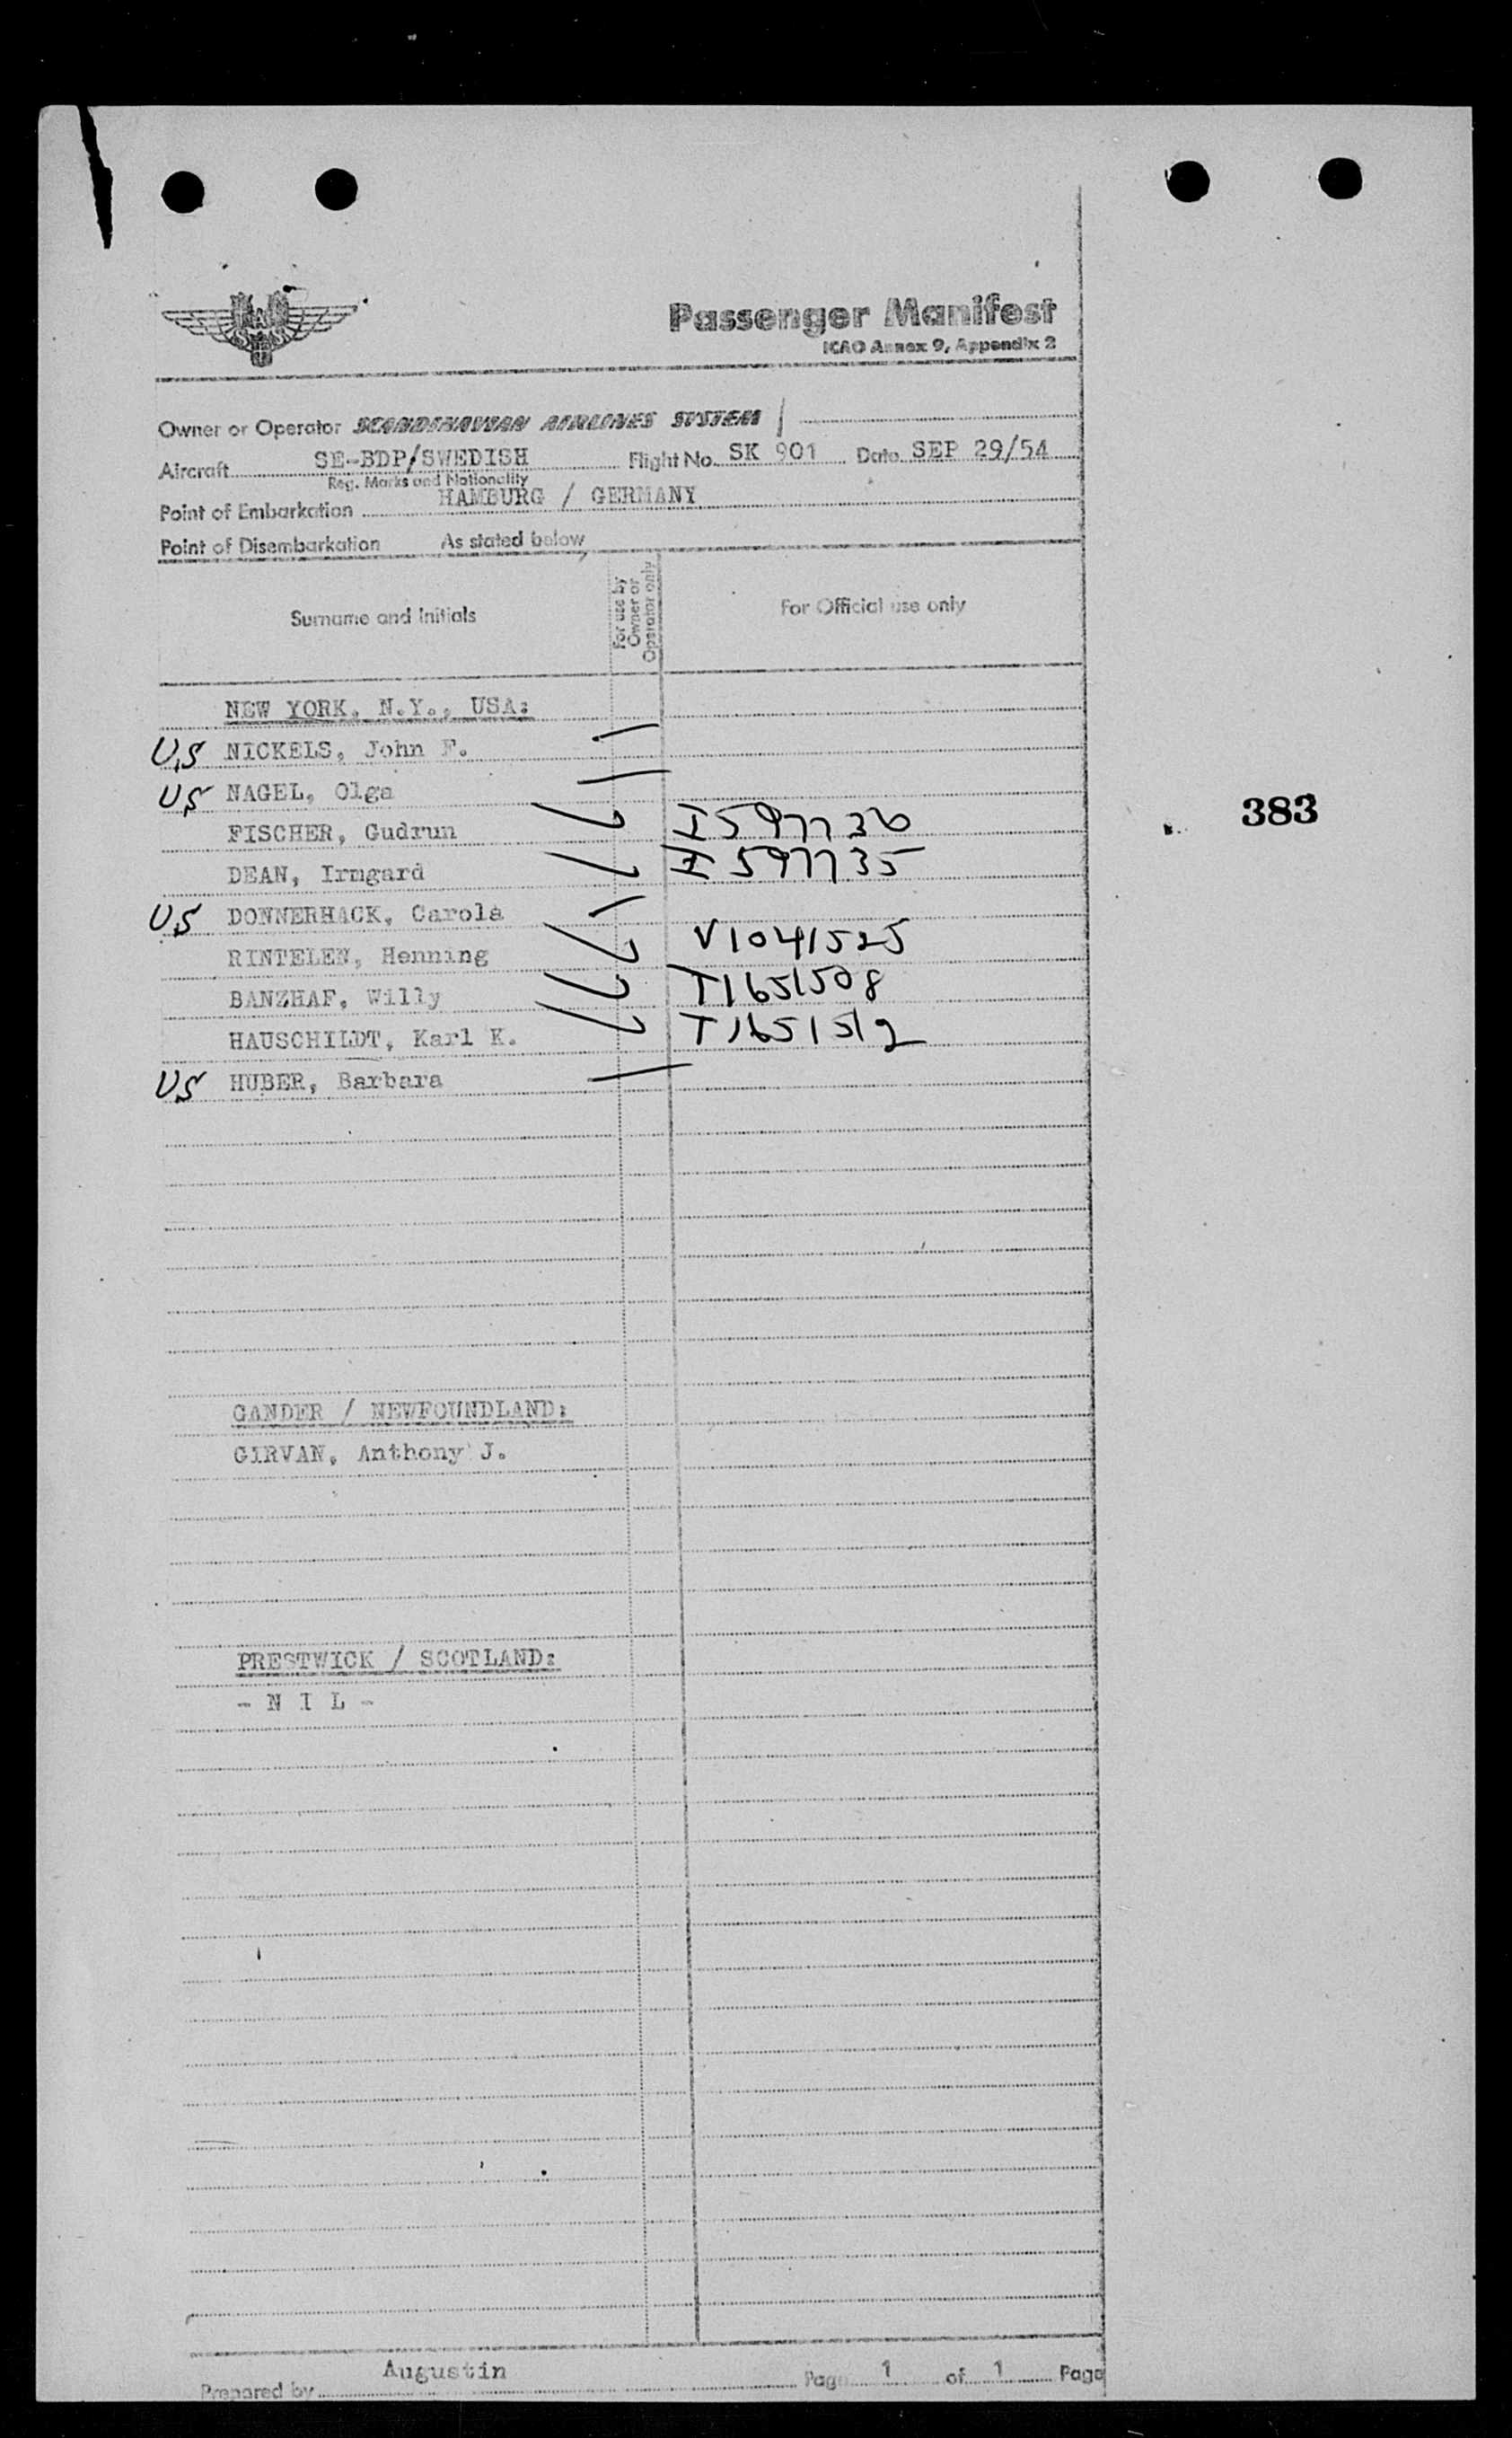 Passenger Manifest
ICAO Annex 9, Appendix 2
Owner or Operator SCANDINAVIAN AIRLINES SYSTEM
Aircraft SE-BDP/SWEDISH Flight No. SK 901 Date SEP 29/54
Reg. Marks and Nationality
Point of Embarkation HAMBURG / GERMANY
Point of Disembarkation As stated below
Surname and Initials For use by Owner or Operator only For Official use only
NEW YORK, N.Y., USA:
US NICKELS, John F.
US NAGEL, Olga
383
FISCHER, Gudrun I597736
DEAN, Irmgard I597735
US DONNERHACK, Carola
RINTELEN, Henning V1041525
BANZHAF, Willy T1651508
HAUSCHILDT, Karl K. T1651512
US HUBER, Barbara
GANDER / NEWFOUNDLAND:
GIRVAN, Anthony J.
PRESTWICK / SCOTLAND:
- N I L -
Prepared by Augustin Page 1 of 1 Page